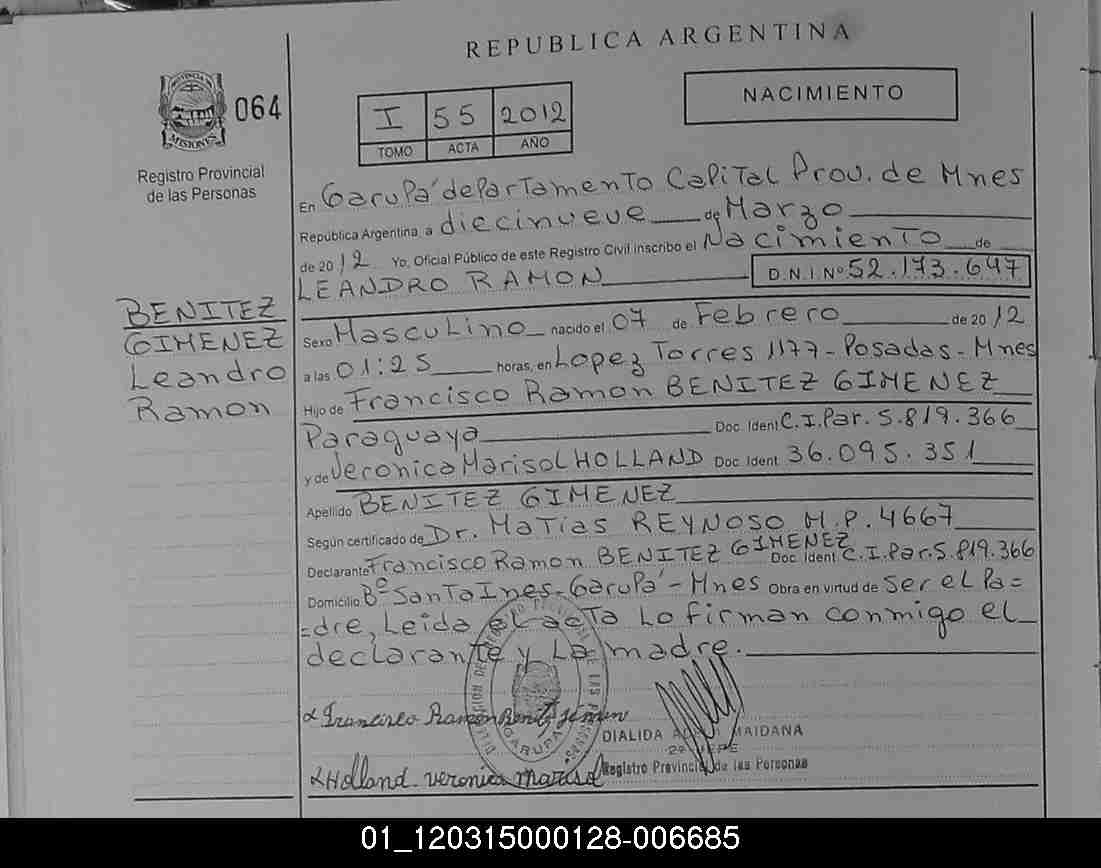 REPUBLICA ARGENTINA
PROVINCIA DE
MISIONES
064
Registro Provincial
de las Personas
I 55 2012
TOMO ACTA AÑO
NACIMIENTO
En Garupá departamento Capital Prov. de Mnes
República Argentina, a diecinueve de Marzo
de 2012 Yo, Oficial Público de este Registro Civil inscribo el Nacimiento de
LEANDRO RAMON D.N.I.Nº 52.173.647
BENITEZ
GIMENEZ
Leandro
Ramon
Sexo Masculino nacido el 07 de Febrero de 2012
a las 01:25 horas, en Lopez Torres 1177-Posadas-Mnes
Hijo de Francisco Ramon BENITEZ GIMENEZ
Paraguaya Doc. Ident C.I.Par. 5.819.366
y de Veronica Marisol HOLLAND Doc. Ident 36.095.351
Apellido BENITEZ GIMENEZ
Según certificado de Dr. Matias REYNOSO M.P. 4667
Declarante Francisco Ramon BENITEZ GIMENEZ Doc. Ident C.I.Par. 5.819.366
Domicilio Bº Santa Ines-Garupá-Mnes Obra en virtud de Ser el Pa=
=dre, Leida el acta Lo firman conmigo el
declarante y La madre.
Francisco Ramon Benitez
GARUPA
DIALIDA MAIDANA
JEFE
Registro Provincial de las Personas
Holland veronica marisol
01_120315000128-006685